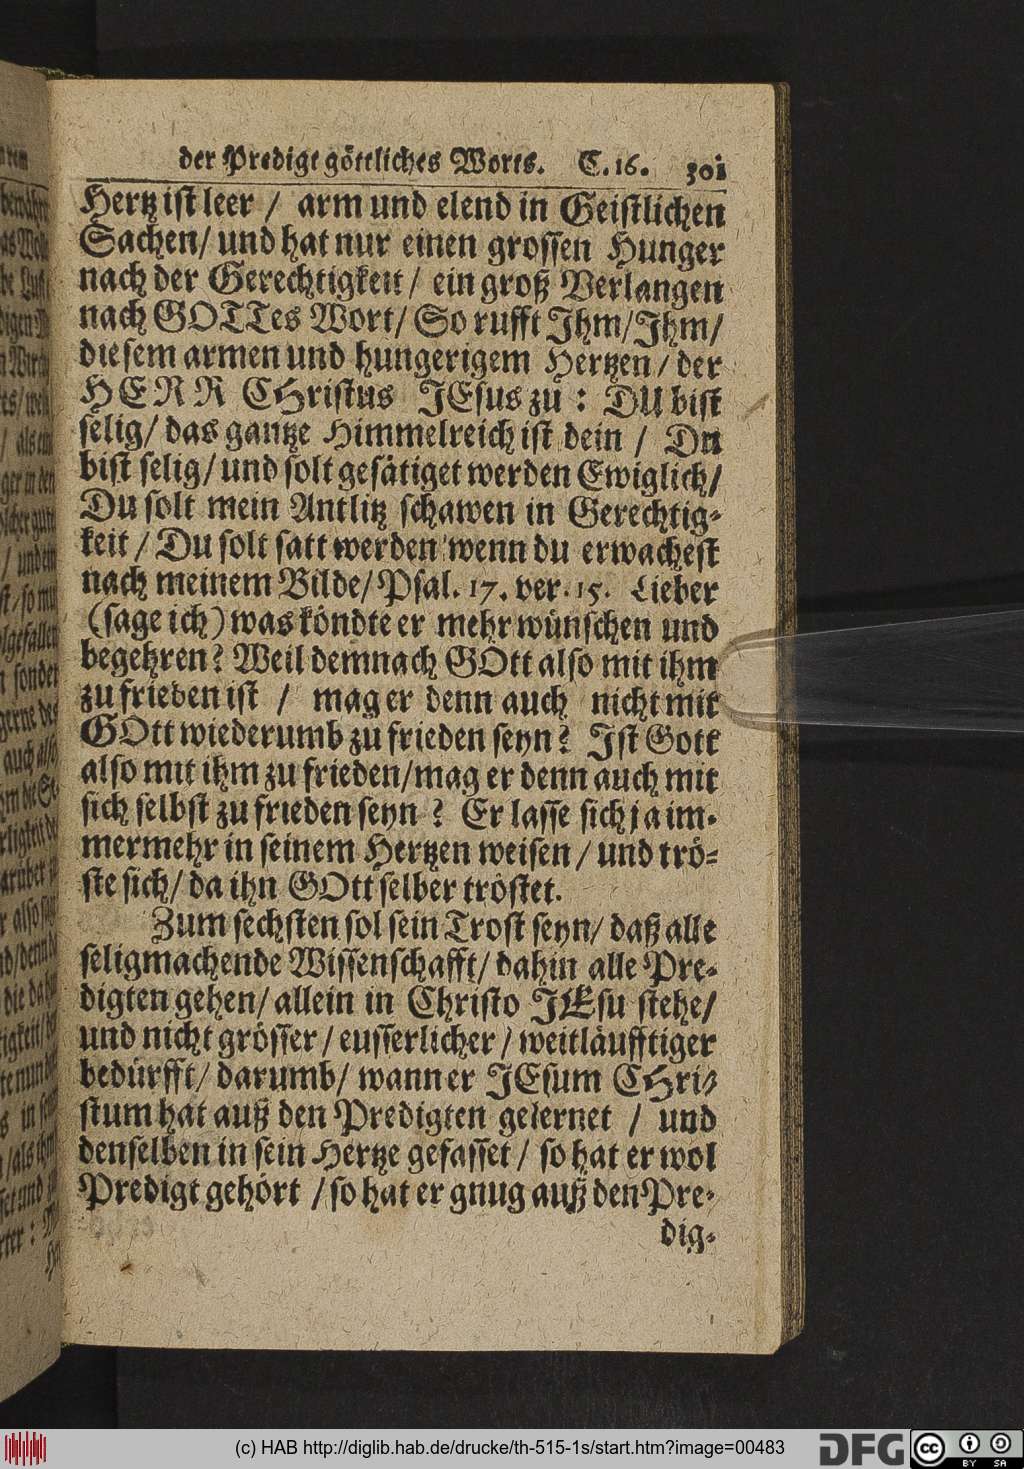 der Predigt göttliches Worts. C.16. 301
Hertz ist leer / arm und elend in Geistlichen
Sachen/ und hat nur einen grossen Hunger
nach der Gerechtigkeit / ein groß Verlangen
nach GOTTes Wort/ So rufft Ihm/Ihm/
diesem armen und hungerigem Hertzen / der
HERR CHristus JEsus zu : DU bist
selig/ das gantze Himmelreich ist dein / Du
bist selig/ und solt gesätiget werden Ewiglich/
Du solt mein Antlitz schawen in Gerechtig-
keit / Du solt satt werden wenn du erwachest
nach meinem Bilde/ Psal. 17. ver. 15. Lieber
(sage ich) was köndte er mehr wünschen und
begehren? Weil demnach GOtt also mit ihm
zu frieden ist / mag er denn auch nicht mit
GOtt wiederumb zu frieden seyn? Ist Gott
also mit ihm zu frieden/mag er denn auch mit
sich selbst zu frieden seyn ? Er lasse sich ja im-
mermehr in seinem Hertzen weisen / und trö-
ste sich/ da ihn GOtt selber tröstet.
Zum sechsten sol sein Trost seyn/ daß alle
seligmachende Wissenschafft/ dahin alle Pre-
digten gehen/ allein in Christo JEsu stehe/
und nicht grösser / eusserlicher / weitläufftiger
bedürfft/ darumb/ wann er JEsum CHri-
stum hat auß den Predigten gelernet / und
denselben in sein Hertze gefasset / so hat er wol
Predigt gehört / so hat er gnug auß den Pre-
dig-
(c) HAB http://diglib.hab.de/drucke/th-515-1s/start.htm?image=00483
DFG
cc BY SA